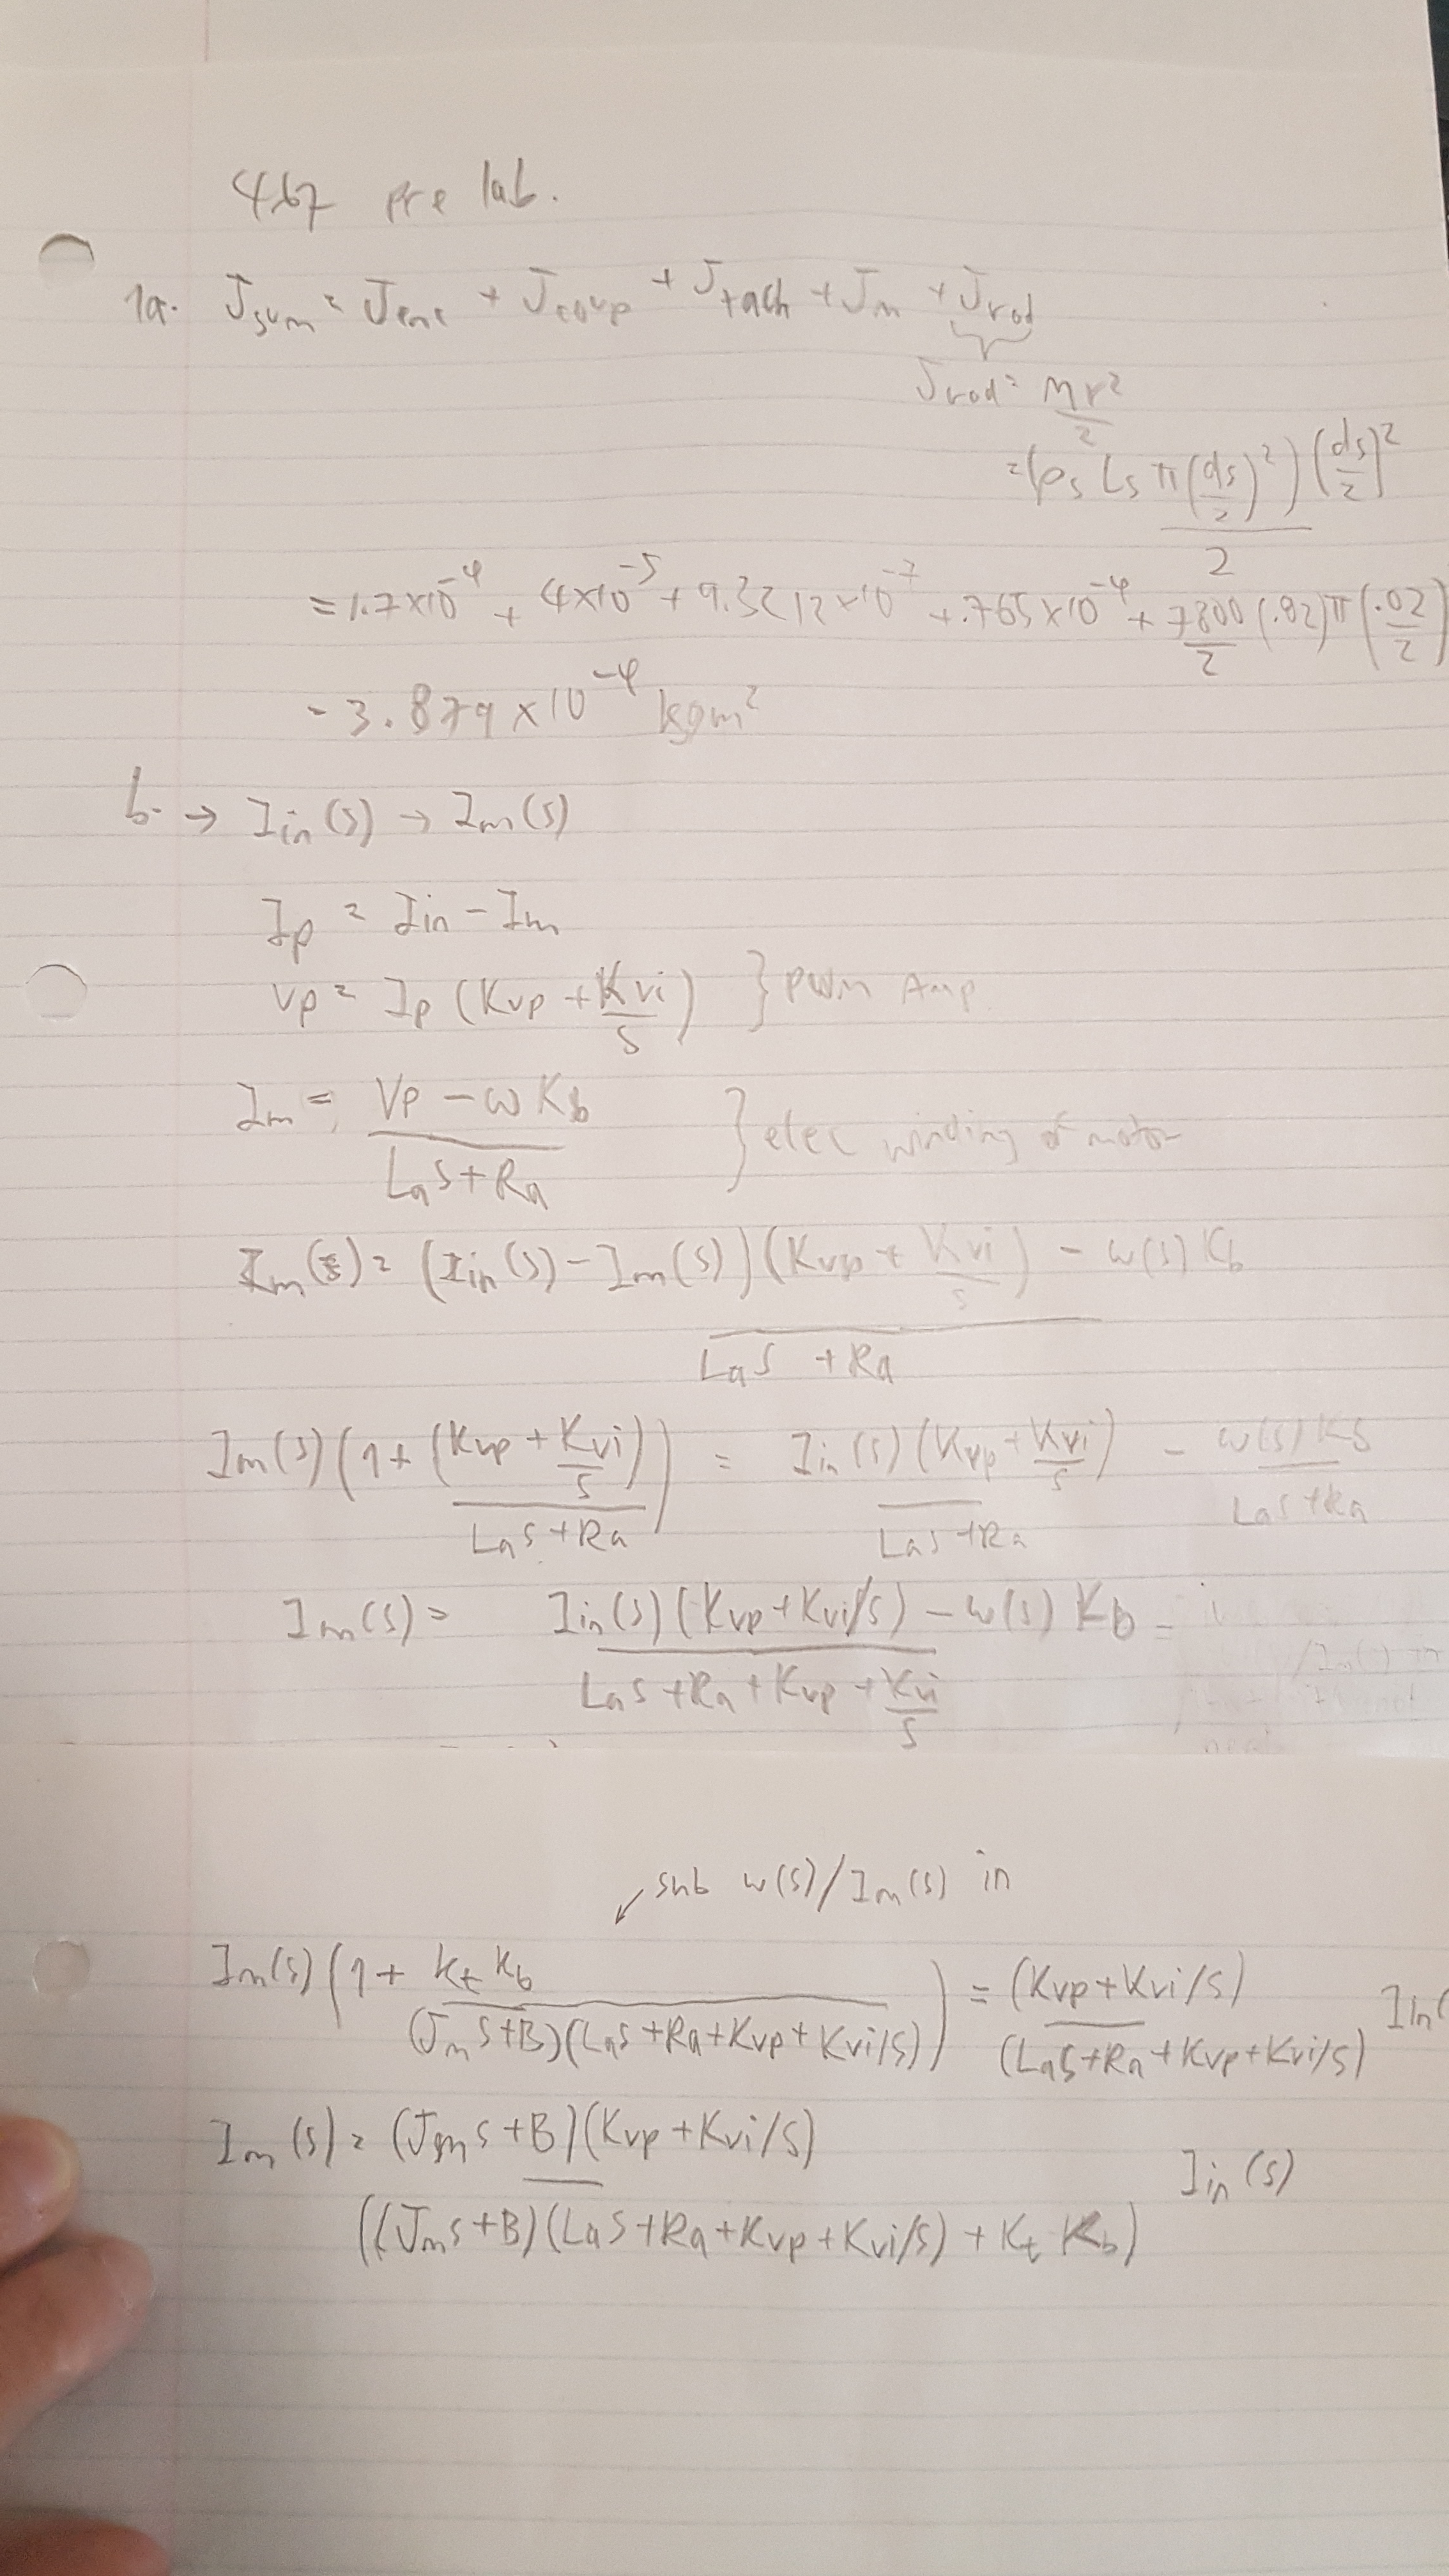 467 pre lab.
1a. Jsum = Jenc + Jcoup + Jtach + Jm + Jrod
Jrod = mr²/2
= (ρs Ls π(ds/2)²)(ds/2)²/2
= 1.7×10⁻⁴ + 4×10⁻⁵ + 9.3212×10⁻⁷ + .765×10⁻⁴ + 7800/2 (.82)π(.02/2)
= 3.879×10⁻⁴ kgm²
b. → Iin(s) → Im(s)
Ip = Iin − Im
Vp = Ip (Kvp + Kvi/s) } PWM Amp
Im = (Vp − ωKb)/(Las + Ra) } elec winding of motor
Im(s) = ((Iin(s) − Im(s))(Kvp + Kvi/s) − ω(s)Kb)/(Las + Ra)
Im(s)(1 + (Kvp + Kvi/s)/(Las + Ra)) = Iin(s)(Kvp + Kvi/s)/(Las + Ra) − ω(s)Kb/(Las + Ra)
Im(s) = (Iin(s)(Kvp + Kvi/s) − ω(s)Kb)/(Las + Ra + Kvp + Kvi/s) =
sub ω(s)/Im(s) in
Im(s)(1 + KtKb/((Jms + B)(Las + Ra + Kvp + Kvi/s))) = (Kvp + Kvi/s)/(Las + Ra + Kvp + Kvi/s) Iin(
Im(s) = (Jms + B)(Kvp + Kvi/s)/((Jms + B)(Las + Ra + Kvp + Kvi/s) + KtKb) Iin(s)